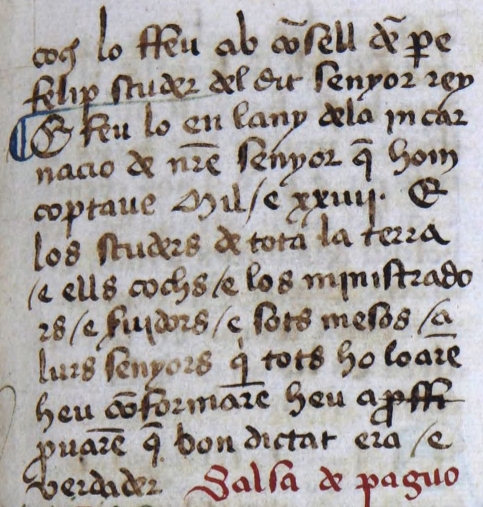 coch lo ffeu ab cõsell de pe
felip scuder del dit senyor rey
E feu lo en lany dela incar
nacio de nr̃e senyor q̃ hom
coptaue Mil/e xxiiij. E
los scuders de tota la terra
/e ells cochs/e los ministrado
rs/e s̃uidors/e sots mesos /a
lurs senyors qi tots ho loarẽ
heu cõformarẽ heu aproffi
ꝓuarẽ q̃ bon dictat era /e
verdader Salsa de paguo